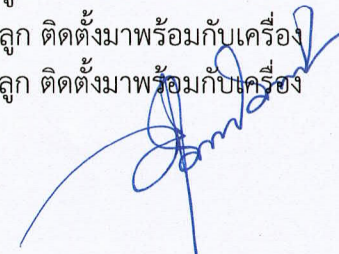 ลูก ติดตั้งมาพร้อมกับเครื่อง
ลูก ติดตั้งมาพร้อมกับเครื่อง